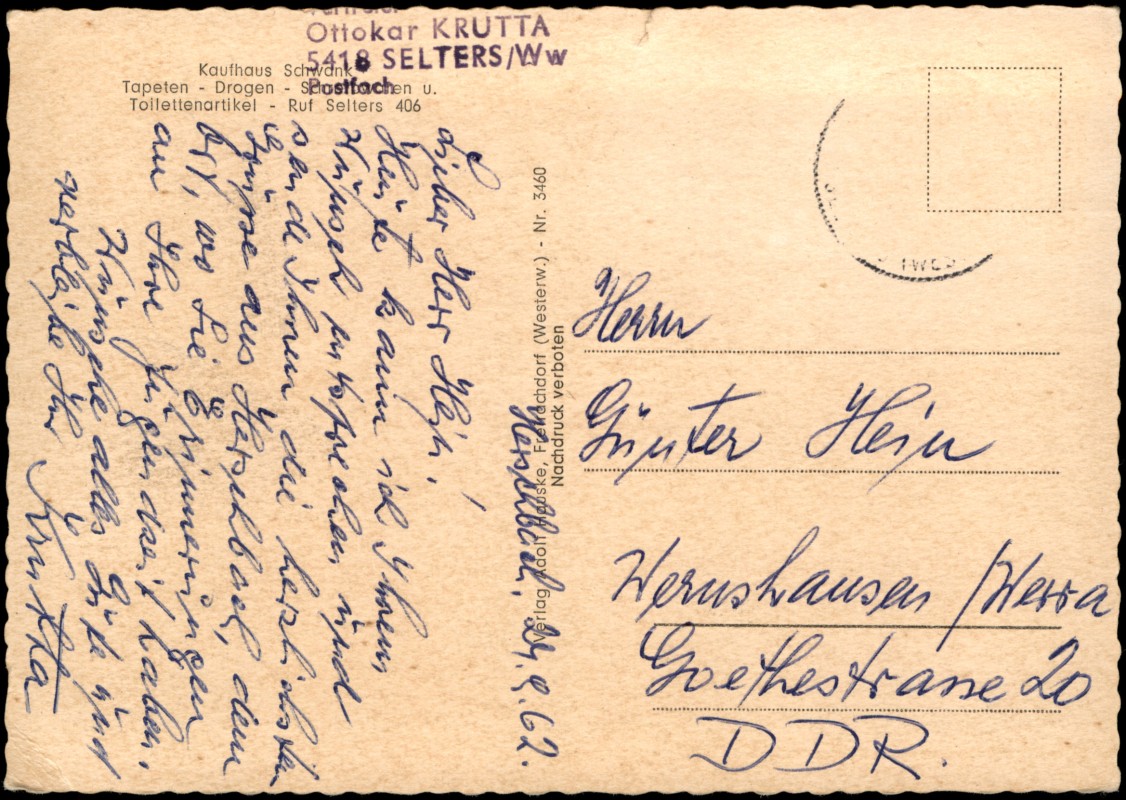 Ottokar KRUTTA
5418 SELTERS/Ww
Postfach
Kaufhaus Schwank
Tapeten - Drogen - u.
Toilettenartikel - Ruf Selters 406
Herschbach. 24.9.62.
Lieber Herr Hein!
Heute kann ich Ihrem
Wunsch entsprechen und
sende Ihnen die herzlichsten
Grüsse aus Herschbach, dem
Ort, wo Sie Erinnerungen
an Ihre Jugendzeit haben.
Wünsche alles Gute und
verbleibe Ihr Krutta
Verlag Adolf Hauske, Freirachdorf (Westerw.) - Nr. 3460
Nachdruck verboten
Herrn
Günter Hein
Wernshausen /Werra
Goethestrasse 20
DDR.